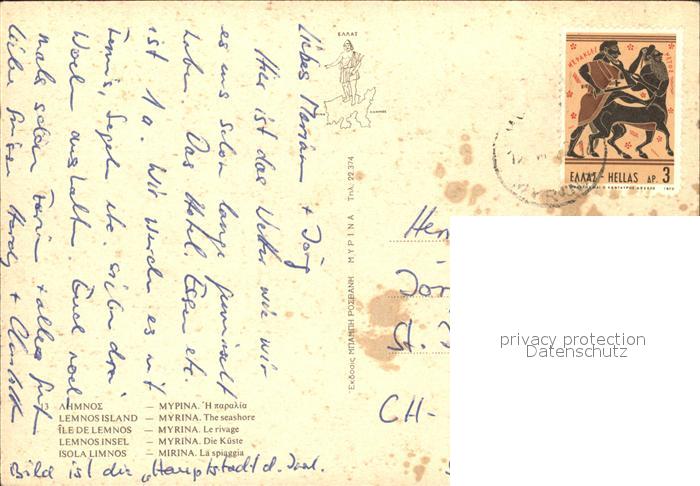 Liebes Marriann + Jörg
Hier ist das Wetter wie wir
es uns schon lange gewünscht
haben. Das Hotel, Essen etc.
ist 1a. Wir werden es mit
Tennis, Segeln etc. sicher drei
Wochen aushalten. Euch noch-
mals schöne Ferien + alles Gute
liebe Grüsse Hardy +
Bild ist die "Hauptstadt d. Insl.
13 ΛΗΜΝΟΣ — ΜΥΡΙΝΑ. Ἡ παραλία
LEMNOS ISLAND — MYRINA. The seashore
ÎLE DE LEMNOS — MYRINA. Le rivage
LEMNOS INSEL — MYRINA. Die Küste
ISOLA LIMNOS — MIRINA. La spiaggia
ΕΛΛΑΣ
Ἔκδοσις ΜΠΑΜΠΗ ΡΟΣΒΑΝΗ ΜΥΡΙΝΑ Τηλ. 22.374
ΕΛΛΑΣ - HELLAS ΔΡ. 3
1970
Her
Jör
St.
CH-
privacy protection
Datenschutz